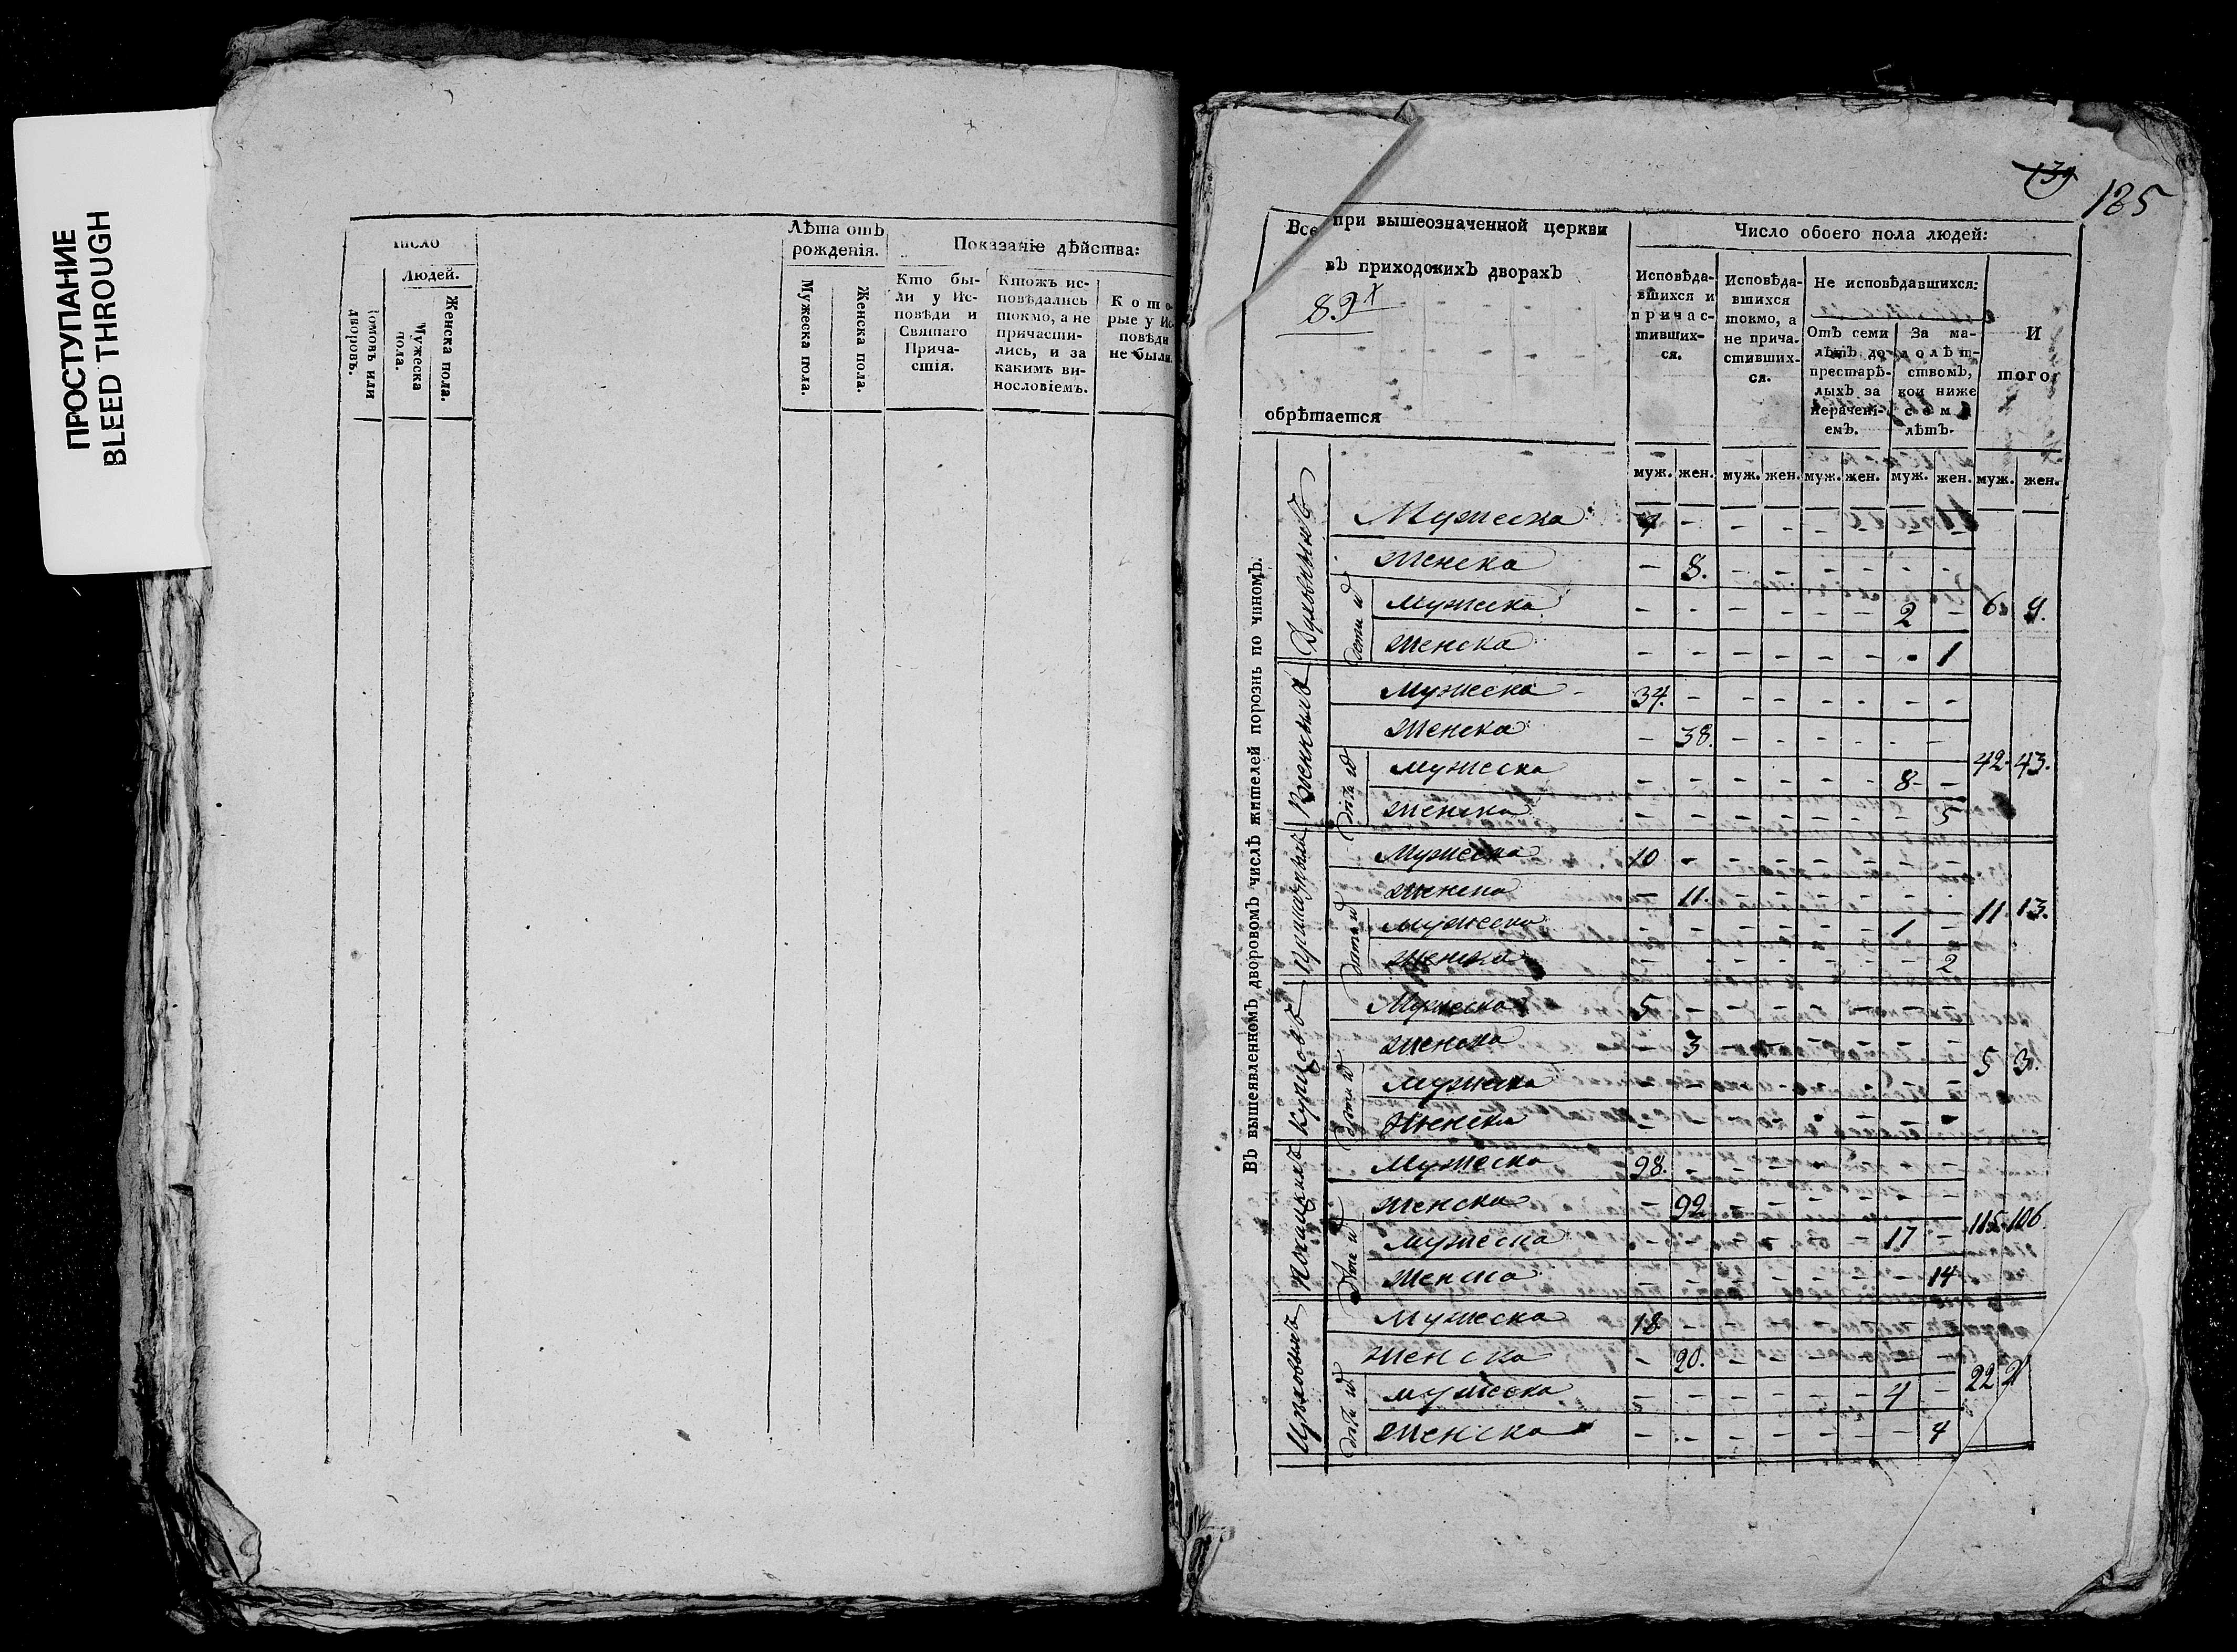 ПРОСТУПАНИЕ
BLEED THROUGH
число
Людей.
домовъ или дворовъ.
Мужеска пола.
Женска пола.
Лѣта отъ рожденія.
Мужеска пола.
Женска пола.
Показаніе дѣйства:
Кто бы-
ли у Ис-
повѣди и
Святаго
Прича-
стія.
Ктожъ ис-
повѣдались
токмо, а не
причасти-
лись, и за
какимъ ви-
нословіемъ.
Кото-
рые у Ис-
повѣди
не были.
139
185
Все при вышеозначенной церкви
въ приходскихъ дворахъ
89х
обрѣтается
Число обоего пола людей:
Исповѣда-
вшихся и
причас-
тивших-
ся.
Исповѣда-
вшихся
токмо, а
не прича-
стивших-
ся.
Не исповѣдавшихся:
Отъ семи
лѣтъ до
престарѣ-
лыхъ за
нерачені-
емъ.
За ма-
лолѣт-
ствомъ,
кои ниже
семи
лѣтъ.
И
того
муж. жен. муж. жен. муж. жен. муж. жен. муж. жен.
Въ вышеявленномъ дворовомъ числѣ жителей порознь по чиномъ.
Духовныхъ
Мужеска 4 - - - - -
Женска - 8. - - - - - -
дети ихъ
Мужеска - - - - - - 2 - 6. 9.
Женска - - - - - - - 1
Военныхъ
Мужеска 34. - - - - - - -
Женска - 38. - - - - - -
дѣти ихъ
Мужеска - - - - - - 8 - 42. 43.
Женска - - - - - - - 5
Мужеска 10 - - - - - - -
Женска - 11. - - - - - -
Мужеска - - - - - - 1 - 11. 13.
Женска - - - - - - 2
Купцовъ
Мужеска 5 - - - - - - -
Женска - 3 - - - - - -
дѣти ихъ
Мужеска - - - - - - - - 5 3.
Женска - - - - - - -
Мужеска 98. - - - - - - -
Женска - 92 - - - - - -
дѣти ихъ
Мужеска - - - - - - 17 - 115. 106.
Женска - - - - - - - 14
Цѣховыхъ
Мужеска 18 - - - - - - -
Женска - 20. - - - - - -
дѣти ихъ
Мужеска - - - - - - 4 - 22
Женска - - - - - - - 4